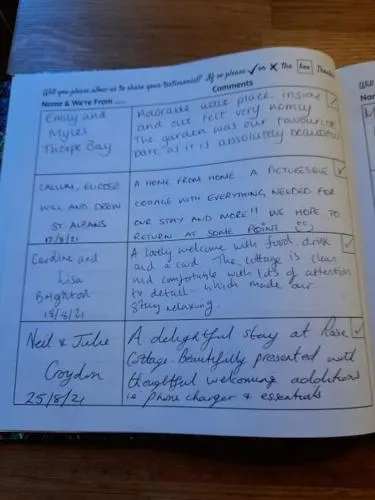 Will you please allow us to share your testimonial? If so please ✓ or ✗ the box Thanks
Name & We're From .....
Comments
Emily and
Myles
Thorpe Bay
Adorable little place, inside
and out felt very homly
The garden was our favourite
part as it is absolutely beautiful
CALLUM,
WILL AND DREW
ST. ALBANS
17/8/21
A HOME FROM HOME. A PICTURESQUE
COTTAGE WITH EVERYTHING NEEDED FOR
OUR STAY AND MORE!! WE HOPE TO
RETURN AT SOME POINT
Caroline and
Lisa
Brighton
18/8/21
A lovely welcome with food, drink
and a card. The cottage is clean
and comfortable with lots of attention
to detail - which made our
stay relaxing.
Neil & Julie
Croydon
25/8/21
A delightful stay at Rose
Cottage. Beautifully presented with
thoughtful welcoming additions
ie phone charger & essentials